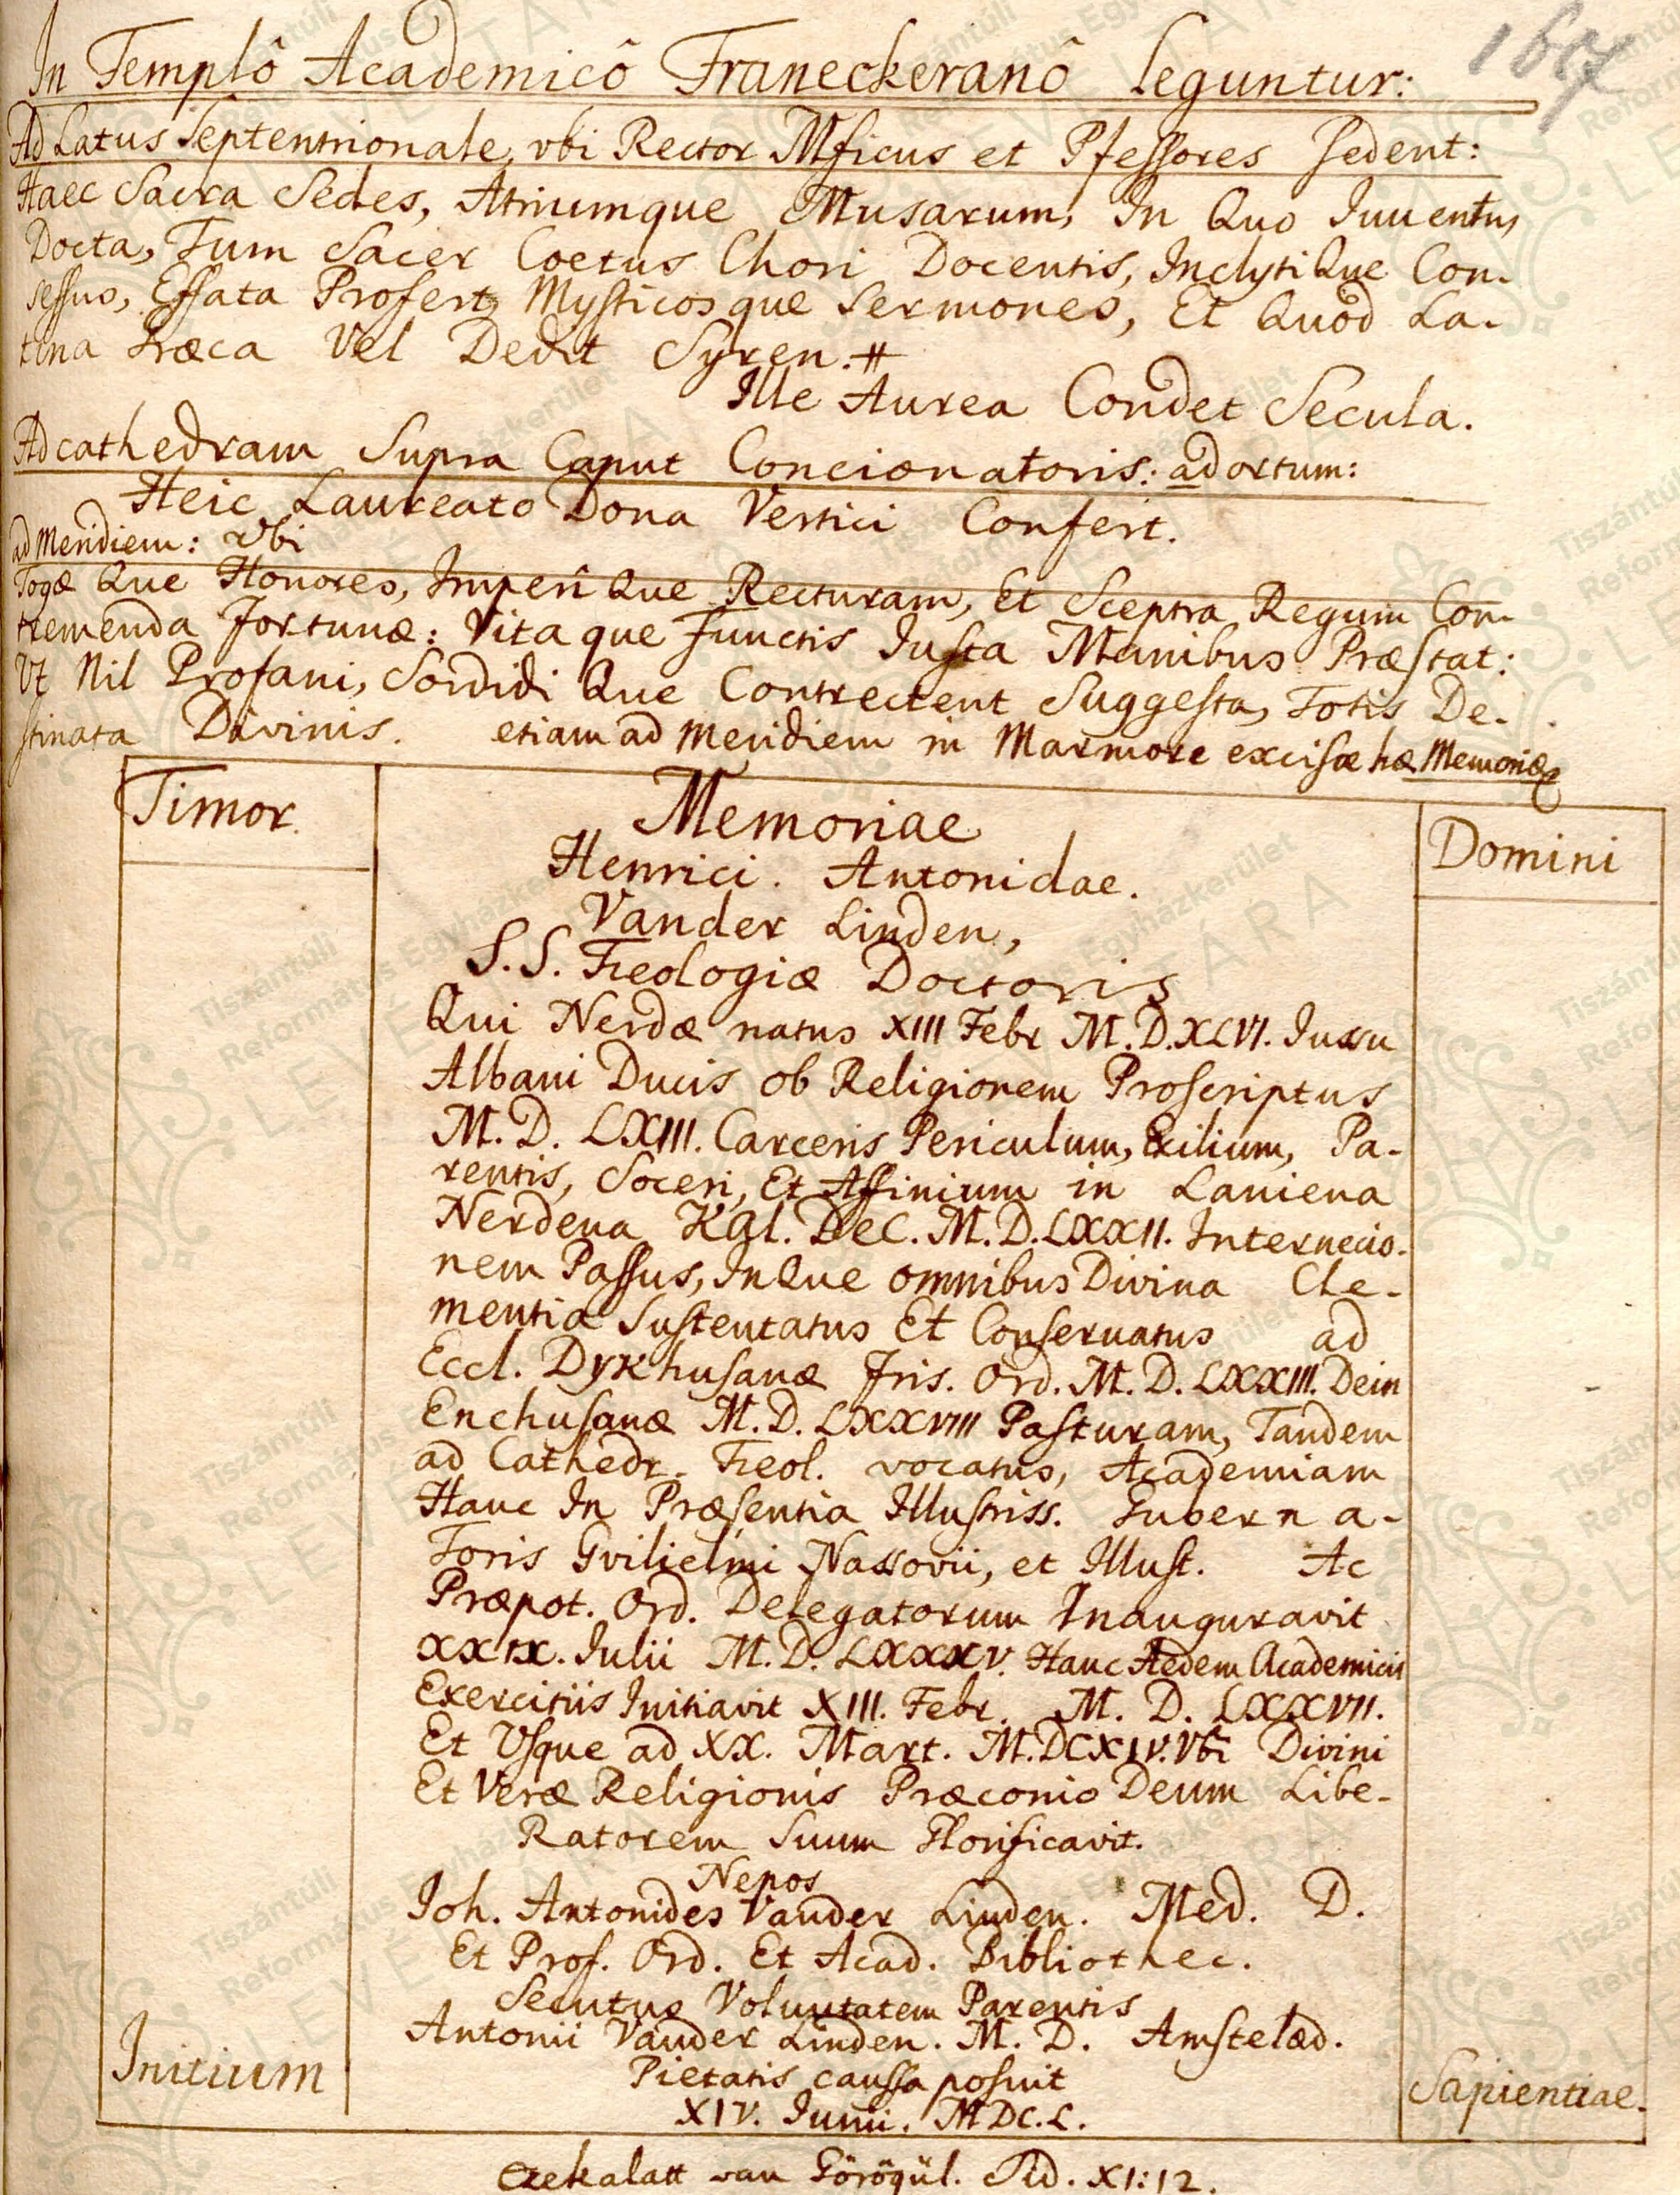 1617
In Templô Academicô Franeckeranô leguntur:
Ad Latus Septentrionale, vbi Rector Mficus et Pfessores sedent:
Haec Sacra Sedes, Atriumque Musarum, In Quo Iuuentus
Docta, Tum Sacer Coetus Chori Docentis, InclytiQue Con-
sessus, Effata Profert, Mysticosque Sermones, Et Quod La-
tina Græca Vel Dedit Syren. #
Ille Aurea Condet Secula.
Ad cathedram Supra Caput Concionatoris: ad ortum:
Heic Laureato Dona Vertici Confert.
ad Meridiem: Vbi
Togæ Que Honores, Imperî Que Recturam, Et Sceptra Regum Con-
tremenda Fortunæ: Vita que Functis Iusta Manibus Præstat:
Vt Nil Profani, Sordidi Que Contrectent Suggesta, Totis De-
stinata Divinis. etiam ad Meridiem in Marmore excisæ hæ Memoriæ
Timor.
Domini
Memoriae
Henrici. Antonidae.
Vander Linden,
S.S. Teologiæ Doctoris
Qui Nerdæ natus XIII Febr M.D.XLVI. Iussu
Albani Ducis ob Religionem Proscriptus
M.D. LXIII. Carceris Periculum, Exilium, Pa-
rentis, Soceri, Et Affinium in Laniena
Nerdena Kal. Dec. M.D.LXXII. Internecio-
nem Passus, InQue omnibus Divina Cle-
mentia Sustentatus Et Conseruatus ad
Eccl. Dykhusanæ Fris. Ord. M.D. LXXIII. Dein
Enchusanæ M.D. LXXVIII Pasturam, Tandem
ad Cathedr. Teol. vocatus, Academiam
Hanc In Præsentia Illustriss. Guberna-
Toris Gvilielmi Nassovii, et Illust. Ac
Præpot. Ord. Delegatorum Inauguravit
XXIX. Iulii M.D. LXXXV. Hanc Aedem Academicis
Exercitiis Initiavit XIII. Febr. M. D. LXXVII.
Et Usque ad XX. Mart. M.DCXIV. Vbi Divini
Et Veræ Religionis Præconio Deum Libe-
Ratorem Suum Glorificavit.
Nepos
Joh. Antonides Vander Linden. Med. D.
Et Prof. Ord. Et Acad. Bibliothec.
Secutus Voluntatem Parentis
Antonii Vander Linden. M. D. Amstelæd.
Pietatis caussa posuit
XIV. Iunii. MDC.L.
Initium
Sapientiae.
Ezekalatt van Görögül. Tid. XI:12.
Tiszántúli
Református Egyházkerület
LEVÉLTÁRA